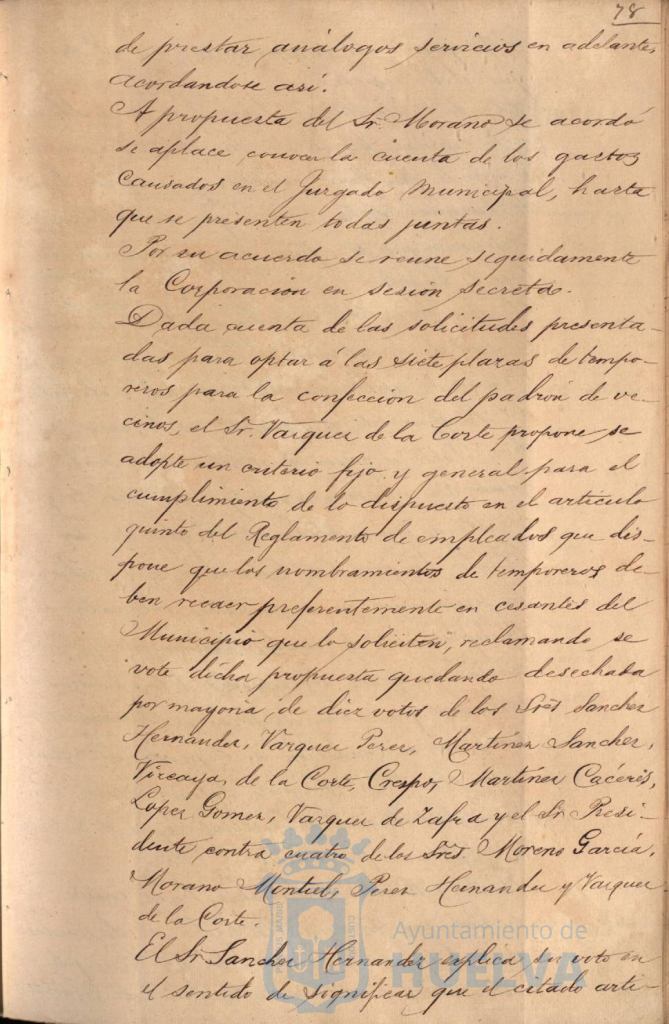 78
de prestar análogos servicios en adelante,
acordandose así.
A propuesta del Sr. Morano se acordó
se aplace conocer la cuenta de los gastos
causados en el Juzgado Municipal, hasta
que se presenten todas juntas.
Por su acuerdo se reune seguidamente
la Corporación en sesión secreta.
Dada cuenta de las solicitudes presenta-
das para optar á las siete plazas de tempo-
reros para la confección del padrón de ve-
cinos, el Sr. Vazquez de la Corte propone se
adopte un criterio fijo y general para el
cumplimiento de lo dispuesto en el articulo
quinto del Reglamento de empleados que dis-
pone que los nombramientos de temporeros de-
ben recaer preferentemente en cesantes del
Municipio que lo soliciten, reclamando se
vote dicha propuesta quedando desechada
por mayoria de diez votos de los Srēs Sanchez
Hernandez, Vazquez Perez, Martinez Sanchez,
Vizcaya, de la Corte, Crespo, Martinez Cacéres,
López Gomez, Vazquez de Zafra y el Sr. Presi-
dente contra cuatro de los Srēs. Moreno García,
Morano Montiel, Perez Hernandez y Vazquez
de la Corte.
El Sr Sanchez Hernandez explica su voto en
el sentido de significar que el citado arti-
Ayuntamiento de
HUELVA